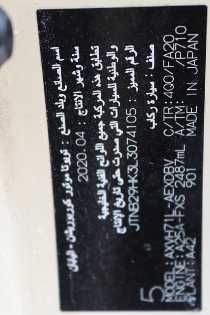 اسم الصانع وبلد الصنع : تويوتا موتور كوربوريشن - اليابان
سنة وشهر الانتاج : 2020.04
تطابق هذه المركبة جميع اللوائح الفنية الخليجية
والوطنية للسيارات التي صدرت في تاريخ الإنتاج
الرقم المميز : JTNB29HK3L3074105
صنف : سيارة ركاب
5
MODEL: AXVH71L-AEXQBV C/TR: 4Q0/FA20
ENGINE: A25A-FXS 2487mL A/TM: /P710
PLANT: A42 901 MADE IN JAPAN